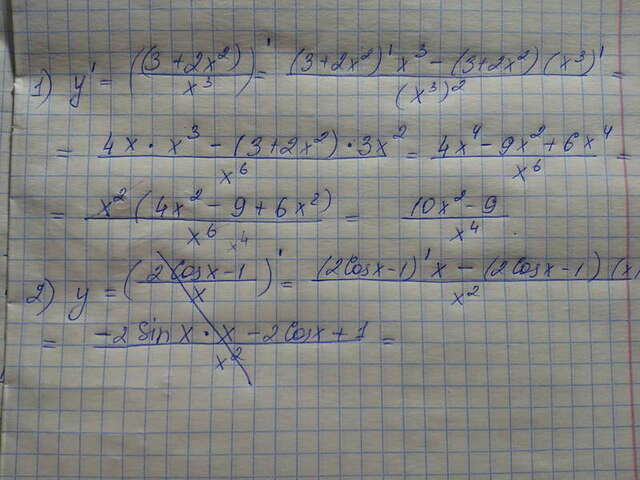 1) y' = ((3 + 2x²) / x³)' = ((3 + 2x²)' x³ − (3 + 2x²) (x³)') / (x³)² =
= (4x · x³ − (3 + 2x²) · 3x²) / x⁶ = (4x⁴ − 9x² + 6x⁴) / x⁶ =
= x² (4x² − 9 + 6x²) / x⁶ x⁴ = (10x² − 9) / x⁴.
2) y = ((2cosx − 1) / x)' = ((2cosx − 1)' x − (2cosx − 1) (x) / x²
= (−2 sin x · x − 2cosx + 1) / x² =